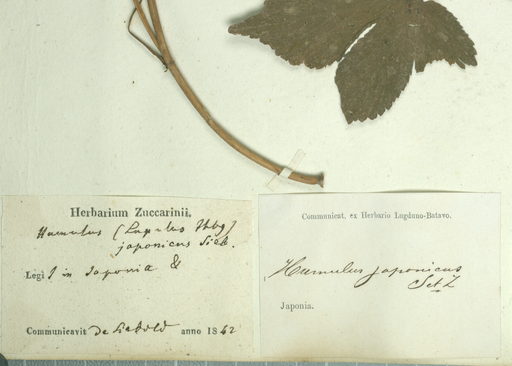 Herbarium Zuccarinii.
Humulus (Lupulus Thbg)
japonicus Sieb.
Legi in Japonia &
Communicavit De Siebold anno 1842
Communicat. ex Herbario Lugduno-Batavo.
Humulus japonicus
S et Z
Japonia.